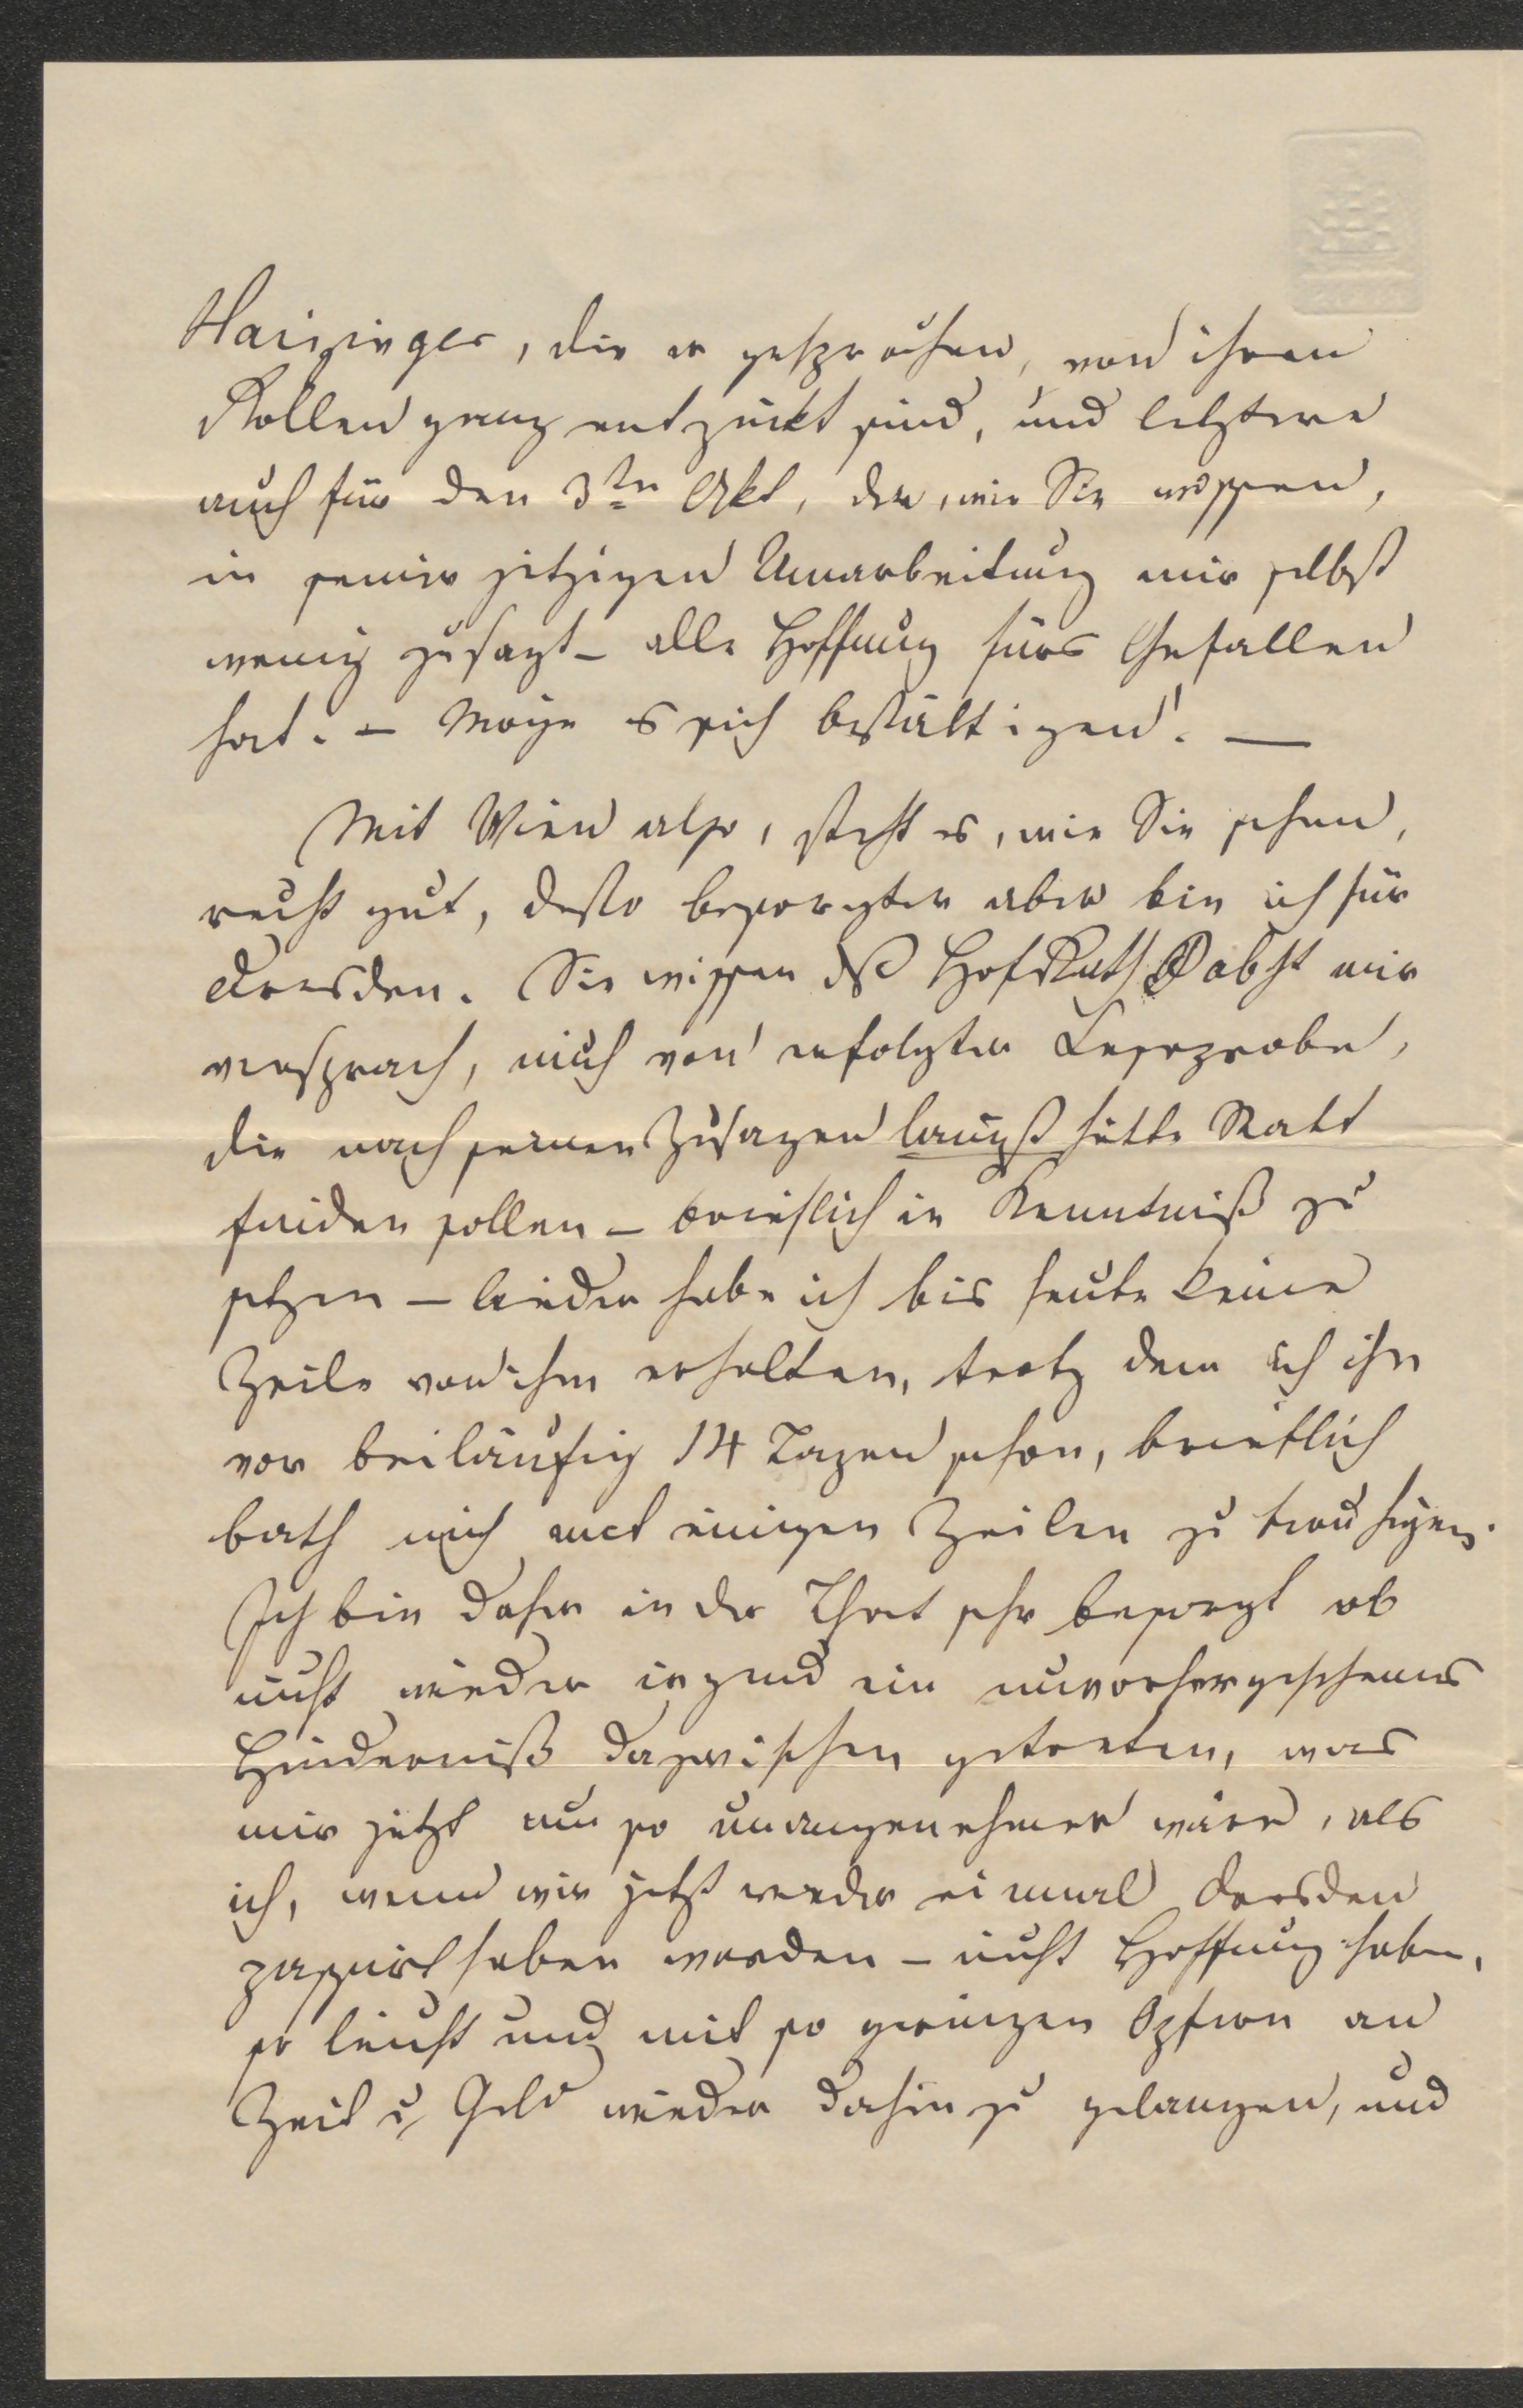 Haizinger, die er gesprochen, von ihren
Rollen ganz entzückt sind, und letztere
auch für den 3ten Akt, der, wie Sie wissen,
in seiner jetzigen Umarbeitung mir selbst
wenig zusagt – alle Hoffnung fürs Gefallen
hat. – Möge es sich bestättigen! —
Mit Wien also, steht es, wie Sie sehen,
recht gut, desto besorgter aber bin ich für
Dresden. Sie wissen dß HofRath Pabst mir
versprach, mich von erfolgter Leseprobe,
die nach seinen Zusagen längst hätte Statt
finden sollen – brieflich in Kenntniß zu
setzen – leider habe ich bis heute keine
Zeile von ihm erhalten, trotz dem ich ihn
vor beiläufig 14 Tagen schon, brieflich
bath mich mit einigen Zeilen zu
Ich bin daher in der That sehr besorgt ob
nicht wieder irgend ein unvorhergesehenes
Hinderniß dazwischen getreten, was
mir jetzt um so unangenehmer wäre, als
ich, wenn wir jetzt wieder einmal Dresden
passirt haben werden – nicht Hoffnung habe,
so leicht und mit so geringen Opfern an
Zeit u Geld wieder dahin zu gelangen, und